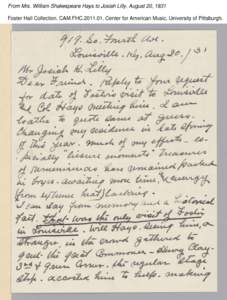 From Mrs. William Shakespeare Hays to Josiah Lilly, August 20, 1931
Foster Hall Collection, CAM.FHC.2011.01, Center for American Music, University of Pittsburgh.
919. So. Fourth Ave.
Louisville, Ky, Aug 20. / 31
Mr Josiah K. Lilly
Dear Friend, Reply to your request
for date of Foster's visit to Louisville
and Col Hays meeting him. I am
loathe to quote same at guess.
Changing my residence in late Spring
of this year. much of my effects - es-
pecially treasure moments treasures
of remembrances has remained packed
in boxes - awaiting more time,
from by time that
I can say from memory and a historical
fact. That was the only visit of Foster
in Louisville. Will Hays. being him, a
stranger, in the crowd gathered to
greet the great Commoner - Henry Clay.
3rd & Green Corner. the regular Stage
Stop. accosted him to help. making